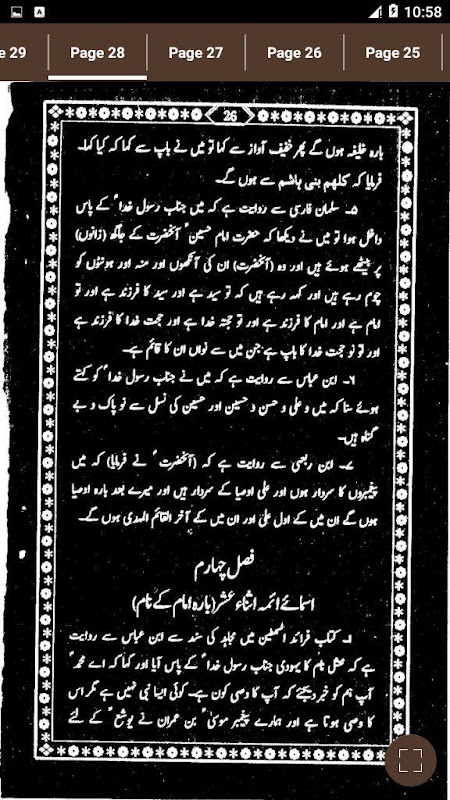 10:58
e 29
Page 28
Page 27
Page 26
Page 25
26
بارہ خلیفہ ہوں گے پھر خفیف آواز سے کہا تو میں نے باپ سے کہا کہ کیا کہا۔
فرمایا کہ کلھم بنی ہاشم سے ہوں گے۔
۵۔ سلمان فارسی سے روایت ہے کہ میں جناب رسول خدا ؐ کے پاس
داخل ہوا تو میں نے دیکھا کہ حضرت امام حسین ؑ آنحضرت کے جانگھ (زانوں)
پر بیٹھے ہوئے ہیں اور وہ (آنحضرت) ان کی آنکھوں اور منہ اور ہونٹوں کو
چوم رہے ہیں اور کہہ رہے ہیں کہ تو سید ہے اور سید کا فرزند ہے اور تو
امام ہے اور امام کا فرزند ہے اور تو حجتہ خدا ہے اور حجت خدا کا فرزند ہے
اور تو نو حجت خدا کا باپ ہے جن میں سے نواں ان کا قائم ہے۔
۶۔ ابن عباس سے روایت ہے کہ میں نے جناب رسول خدا ؐ کو کہتے
ہوئے سنا کہ میں و علی و حسن و حسین اور حسین کی نسل سے نو پاک و بے
گناہ ہیں۔
۷۔ ابن ربعی سے روایت ہے کہ (آنحضرت ؐ نے فرمایا) کہ میں
پیغمبروں کا سردار ہوں اور علی اوصیا کے سردار ہیں اور میرے بعد بارہ اوصیا
ہوں گے ان میں کے اول علی اور ان میں کے آخر القائم المہدی ہوں گے۔
فصل چہارم
اسمائے ائمہ اثناء عشر (بارہ امام کے نام)
۱۔ کتاب فرائد السمطین میں مجاہد کی سند سے ابن عباس سے روایت
ہے کہ نعثل نام کا یہودی جناب رسول خدا ؐ کے پاس آیا اور کہا کہ اے محمد ؐ
آپ ہم کو خبر دیجئے کہ آپ کا وصی کون ہے۔ کوئی ایسا نبی نہیں ہے مگر اس
کا وصی ہوتا ہے اور ہمارے پیغمبر موسیٰ ؑ بن عمران نے یوشع ؑ کے لئے